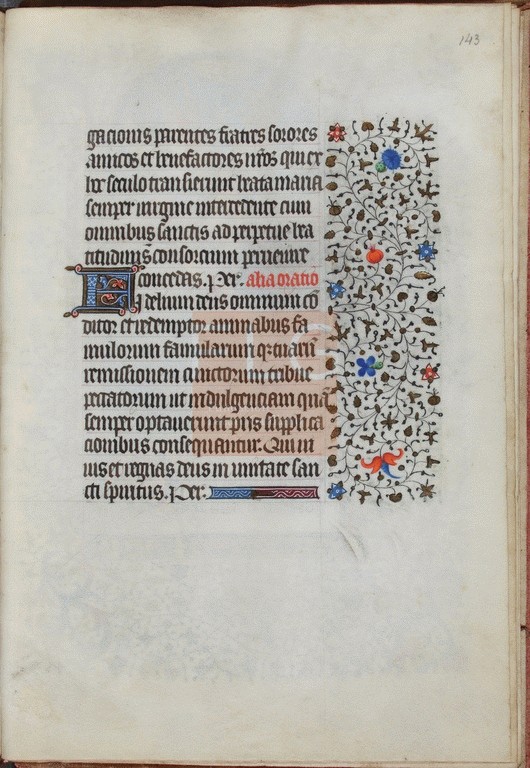 143
gacionis parentes fratres sorores
amicos et benefactores nr̄os qui ex
hoc seculo transierunt beata maria
semper virgine intercedente cum
omnibus sanctis ad perpetue bea
titudinis consorcium pervenire
concedas. Per. alia oratio
Fidelium deus omnium cō
ditor et redemptor animabus fa
mulorum famularum q3 tuarū
remissionem cunctorum tribue
peccatorum ut indulgenciam quā
semper optaverunt piis supplica
cionibus consequantur. Qui vi
vis et regnas deus in unitate san
cti spiritus. Per.